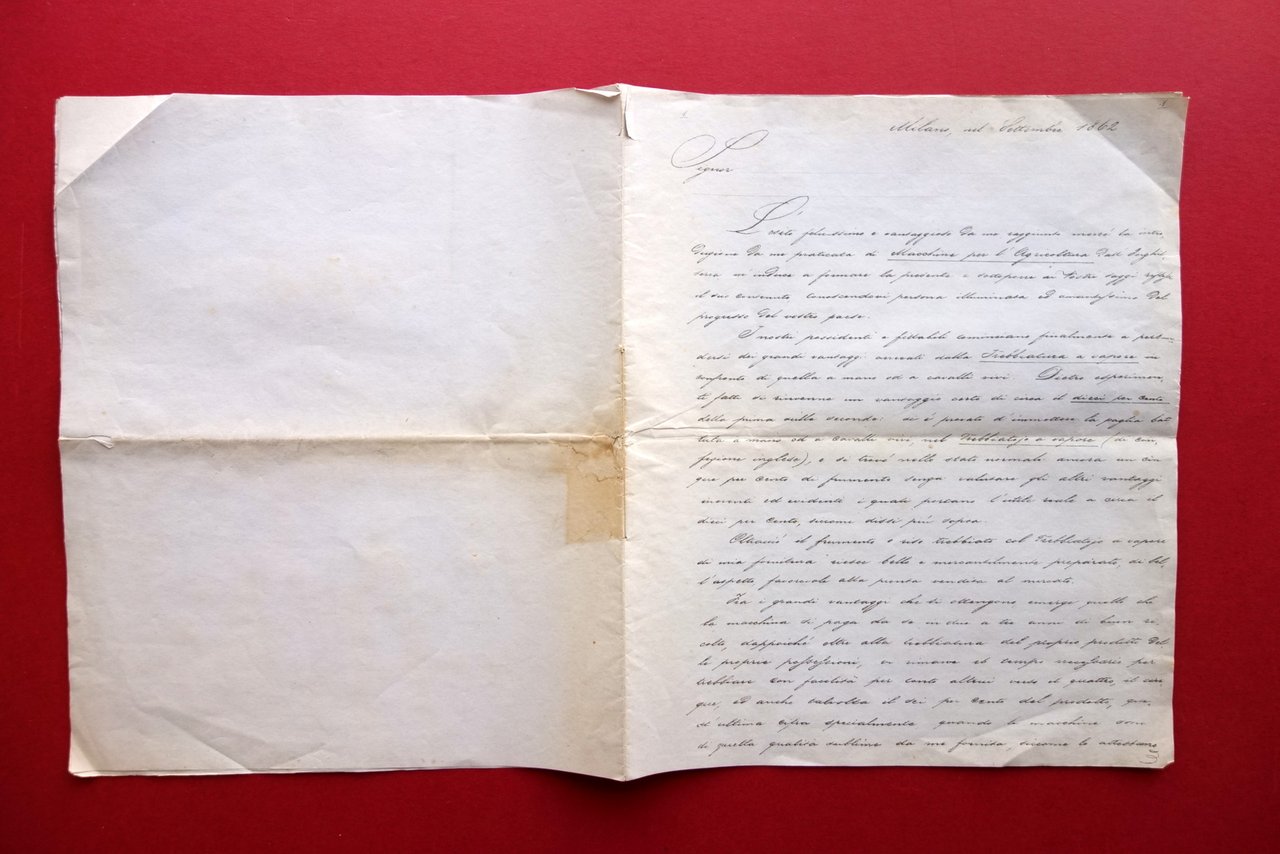 Milano, nel Settembre 1862
Signor
L'esito felicissimo e vantaggioso da me raggiunto mercè la intro
duzione da me praticata di Macchine per l'Agricoltura dall'Inghil
terra m'induce a firmare la presente e sottoporre ai Vostri saggi
il suo contenuto, conoscendovi persona illuminata ed amantissimo del
progresso del vostro paese.
I nostri possidenti e fittabili cominciano finalmente a persua
dersi dei grandi vantaggi arrecati dalla Trebbiatura a vapore in
confronto di quella a mano od a cavalli vivi. Dietro esperimen
ti fatti si rinvenne un vantaggio certo di circa il dieci per cento
della prima sulla seconda: si è provato d'immettere la paglia bat
tuta a mano od a cavalli vivi, nel Trebbiatojo a vapore (di con
fezione inglese), e si trovò nello stato normale ancora un cin
que per cento di frumento senza valutare gli altri vantaggi
inerenti ed evidenti i quali portano l'utile reale a circa il
dieci per cento, siccome dissi più sopra.
Oltracciò il frumento e riso trebbiato col Trebbiatojo a vapore
di mia fornitura riesce bello e mercantilmente preparato, di bel
l'aspetto favorevole alla pronta vendita al mercato.
Fra i grandi vantaggi che si ottengono emerge quello che
la macchina si paga da se in due a tre anni di buon re
colto, dappoichè oltre alla trebbiatura del proprio prodotto del
le proprie possessioni, vi rimane il tempo necessario per
trebbiare con facilità per conto altrui verso il quattro, il cin
que, ed anche talvolta il sei per cento del prodotto, que
st'ultima cifra specialmente quando le macchine sono
di quella qualità sublime da me fornita, siccome lo attestano